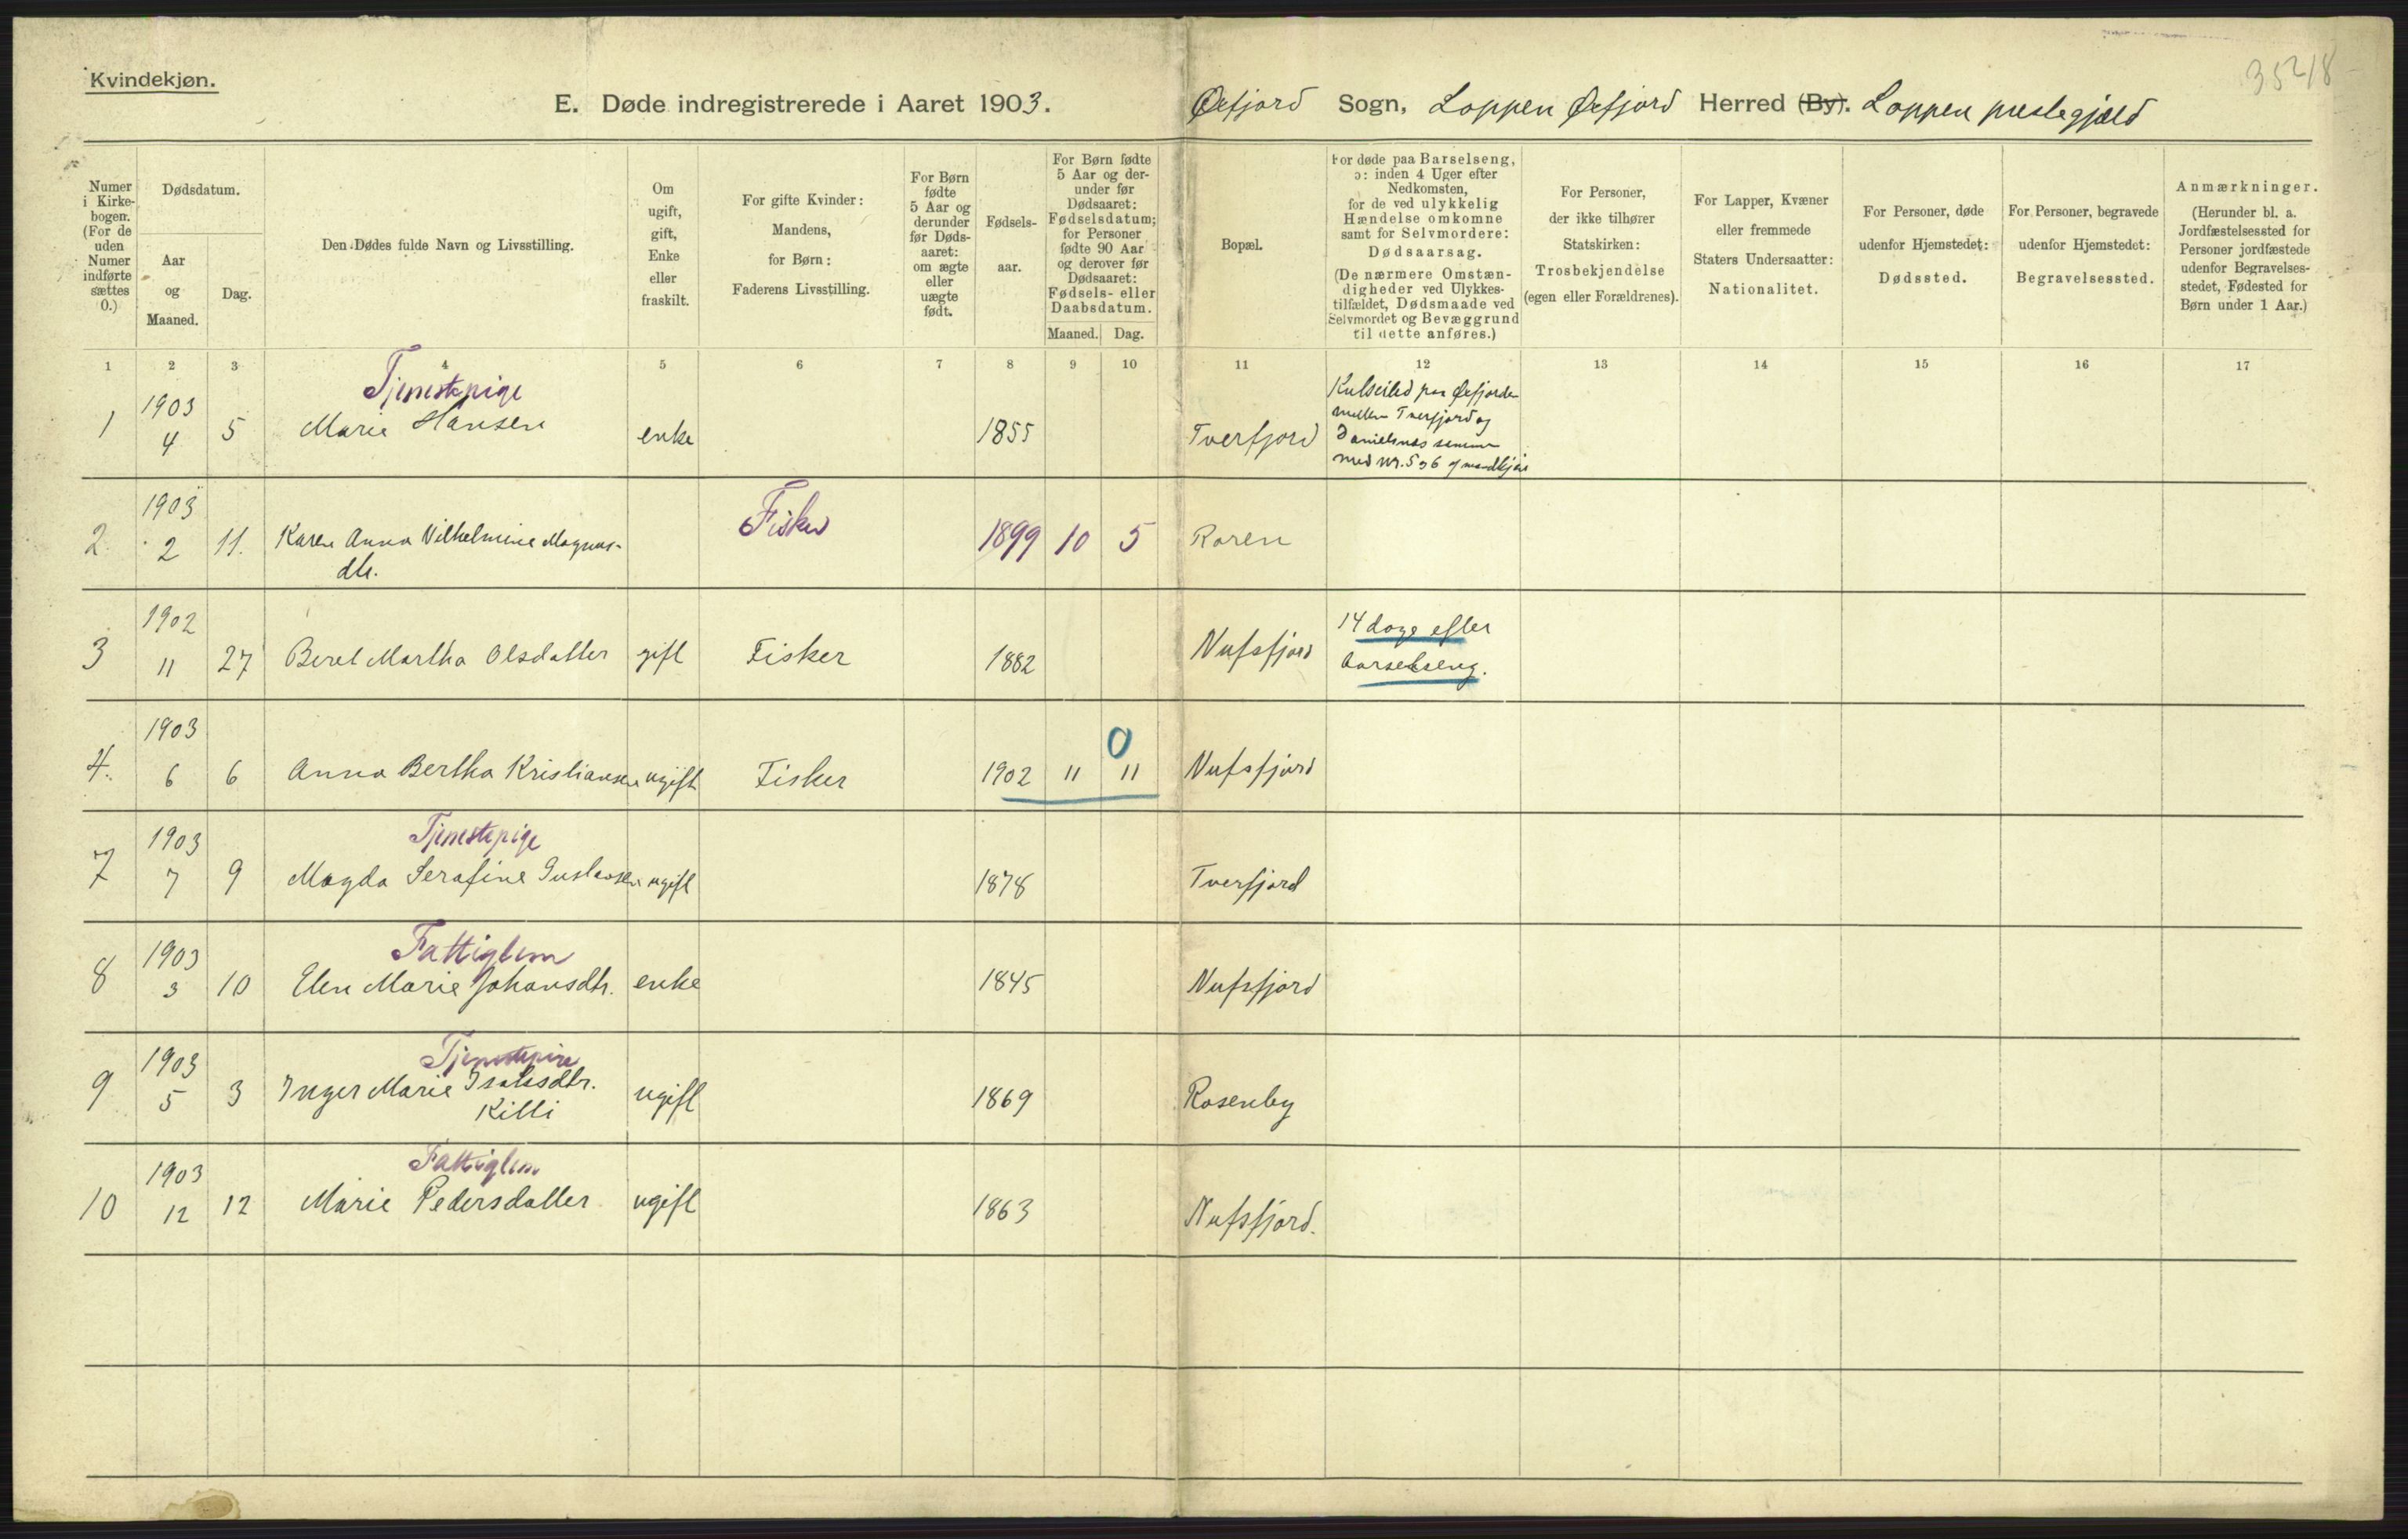 Kvindekjøn.
3518
E. Døde indregistrerede i Aaret 1903. Øxfjord Sogn, Loppen Øxfjord Herred (By). Loppen prestegjæld
Numer i Kirkebogen. (For de uden Numer indførte sættes 0.)
Dødsdatum.
Aar og Maaned.
Dag.
Den Dødes fulde Navn og Livsstilling.
Om ugift, gift, Enke eller fraskilt.
For gifte Kvinder: Mandens, for Børn: Faderens Livsstilling.
For Børn fødte 5 Aar og derunder før Dødsaaret: om ægte eller uægte født.
Fødselsaar.
For Børn fødte 5 Aar og derunder før Dødsaaret: Fødselsdatum; for Personer fødte 90 Aar og derover før Dødsaaret: Fødsels- eller Daabsdatum.
Maaned. Dag.
Bopæl.
For døde paa Barselseng, ɔ: inden 4 Uger efter Nedkomsten, for de ved ulykkelig Hændelse omkomne samt for Selvmordere: Dødsaarsag. (De nærmere Omstændigheder ved Ulykkestilfældet, Dødsmaade ved Selvmordet og Bevæggrund til dette anføres.)
For Personer, der ikke tilhører Statskirken: Trosbekjendelse (egen eller Forældrenes).
For Lapper, Kvæner eller fremmede Staters Undersaatter: Nationalitet.
For Personer, døde udenfor Hjemstedet: Dødssted.
For Personer, begravede udenfor Hjemstedet: Begravelsessted.
Anmærkninger. (Herunder bl. a. Jordfæstelsessted for Personer jordfæstede udenfor Begravelsesstedet, Fødested for Børn under 1 Aar.)
1 2 3 4 5 6 7 8 9 10 11 12 13 14 15 16 17
1 1903 4 5 Tjenestepige Marie Hansen enke 1855 Tverfjord
Kulseiled paa Øxfjorden
mellem Tverfjord og
Danielsnes samen
med nr. 5 og 6 af mandkjøn
2 1903 2 11. Karen Anna Vilhelmine Magnus-
dtr. Fisker 1899 10 5 Raren
3 1902 11 27 Beret Martha Olsdatter gift Fisker 1882 Nufsfjord 14 dage efter
barselseng.
4. 1903 6 6 Anna Bertha Kristiansen ugift Fisker 1902 11 11 0 Nufsfjord
7 1903 7 9 Tjenestepige Magda Serafine Gustavsen ugift 1878 Tverfjord
8 1903 3 10 Fattiglem Elen Marie Johansdtr. enke 1845 Nufsfjord
9 1903 5 3 Tjenestepige Inger Marie Isaksdtr.
Killi ugift 1869 Rosenby
10 1903 12 12 Fattiglem Marie Pedersdatter ugift 1863 Nufsfjord.